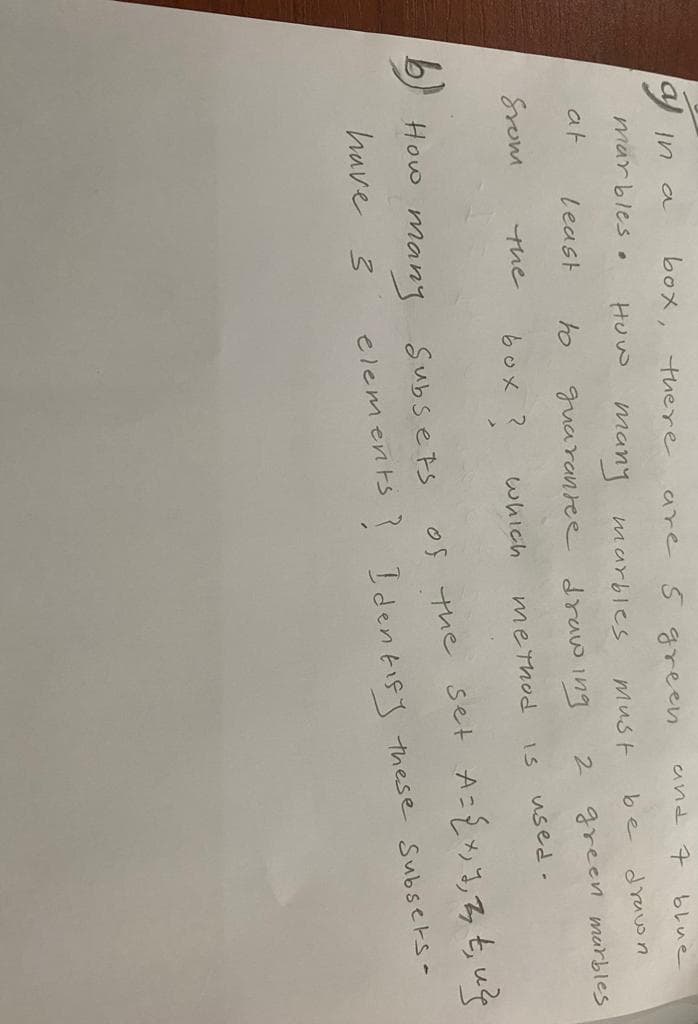 a) In a box, there are 5 green and 7 blue
marbles. How many marbles must be drawn
at least to guarantee drawing 2 green marbles
from the box? which method is used.
b) How many subsets of the set A={x,y,z,t,u}
have 3 elements? Identify these subsets.